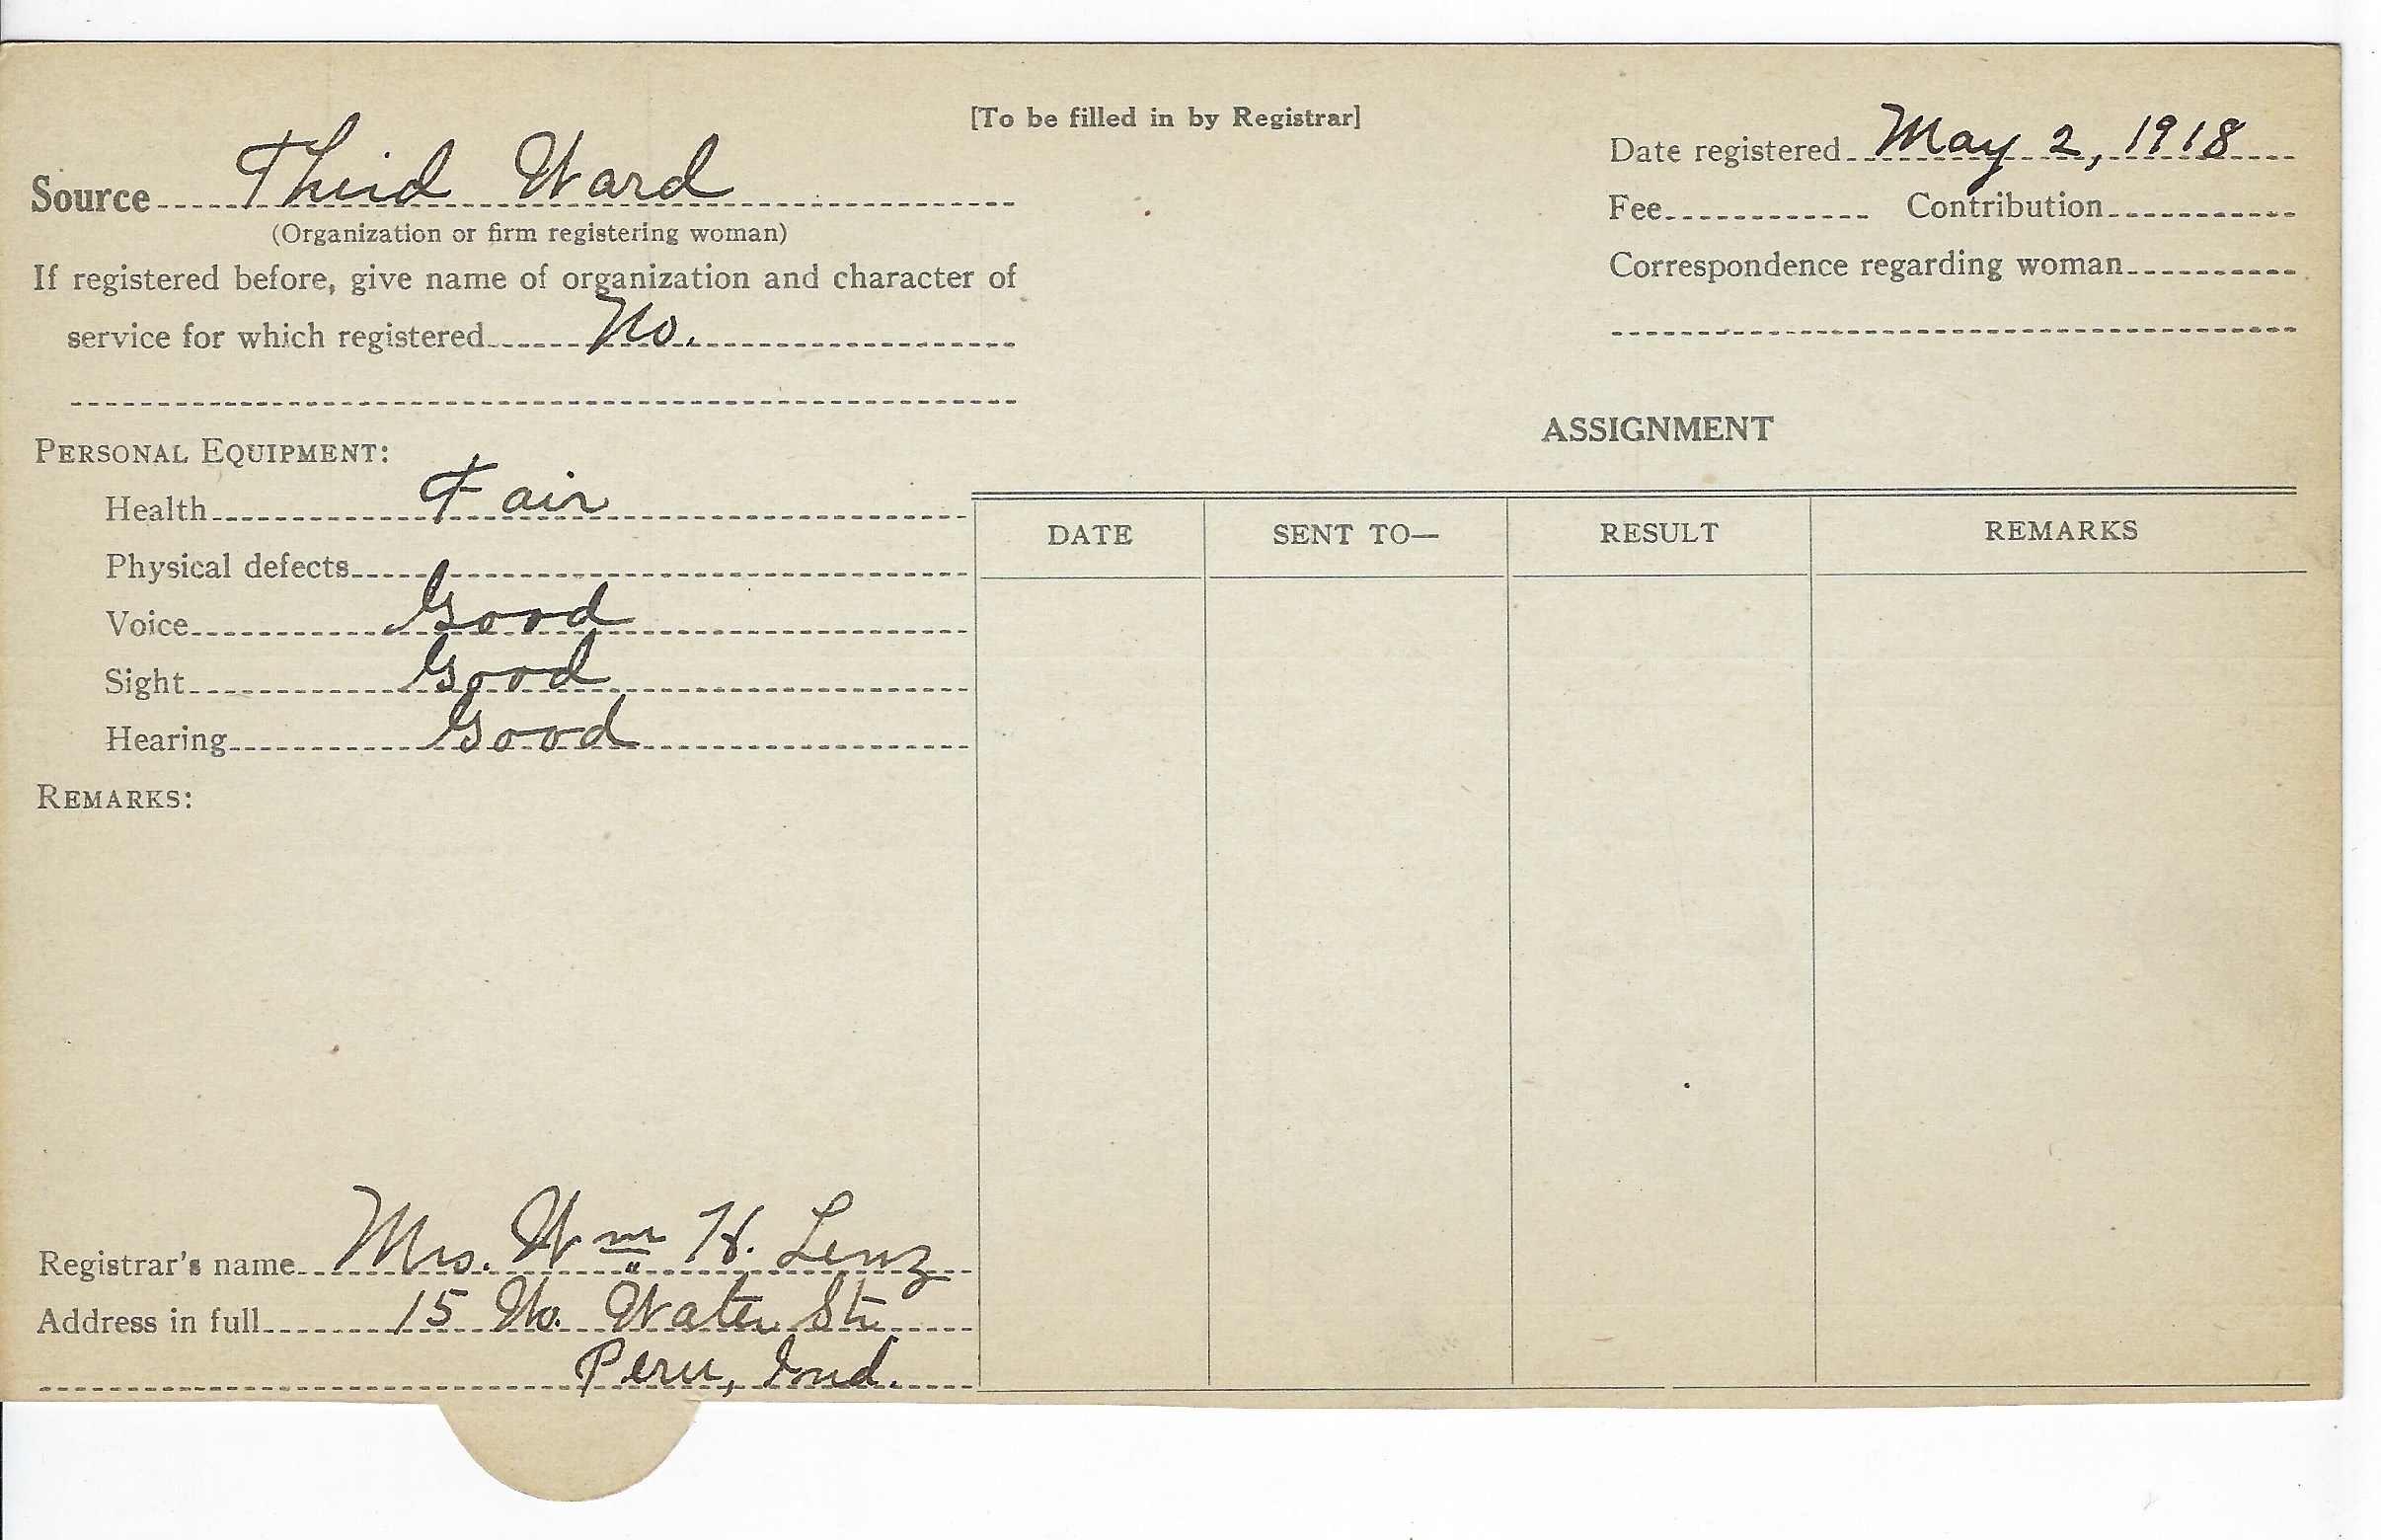 [To be filled in by Registrar]
Source Third Ward
(Organization or firm registering woman)
If registered before, give name of organization and character of
service for which registered No.
Date registered May 2, 1918
Fee Contribution
Correspondence regarding woman
PERSONAL EQUIPMENT:
Health Fair
Physical defects
Voice Good
Sight Good
Hearing Good
REMARKS:
ASSIGNMENT
DATE SENT TO— RESULT REMARKS
Registrar's name Mrs. Wm H. Lenz
Address in full 15 No. Water St.
Peru, Ind.